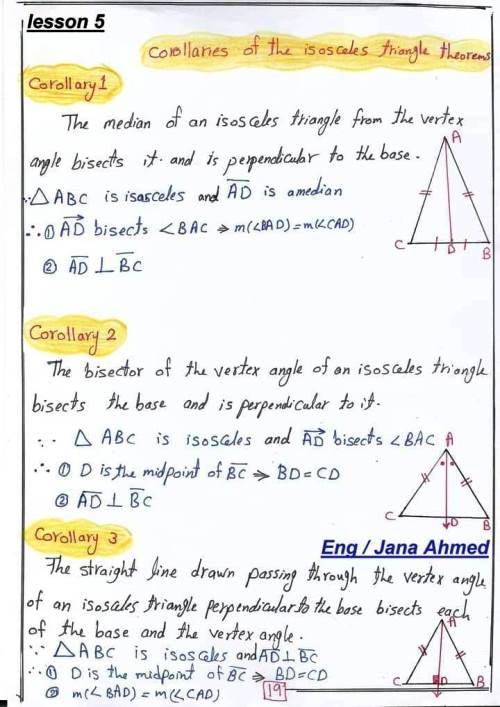 lesson 5
Corollaries of the isosceles triangle theorems
Corollary 1
The median of an isosceles triangle from the vertex
angle bisects it. and is perpendicular to the base.
A
∵ △ ABC is isosceles and A͞D is a median
∴ ① A⃗D bisects ∠BAC ⇒ m(∠BAD) = m(∠CAD)
C D B
② A͞D ⊥ B͞C
Corollary 2
The bisector of the vertex angle of an isosceles triangle
bisects the base and is perpendicular to it.
∵ △ ABC is isosceles and A⃗D bisects ∠BAC
A
∴ ① D is the midpoint of B͞C ⇒ BD = CD
② A͞D ⊥ B͞C
C D B
Corollary 3
Eng / Jana Ahmed
The straight line drawn passing through the vertex angle
of an isosceles triangle perpendicular to the base bisects each
of the base and the vertex angle.
A
∵ △ ABC is isosceles and A͞D ⊥ B͞C
∴ ① D is the midpoint of B͞C ⇒ BD = CD
② m(∠BAD) = m(∠CAD)
C D B
19